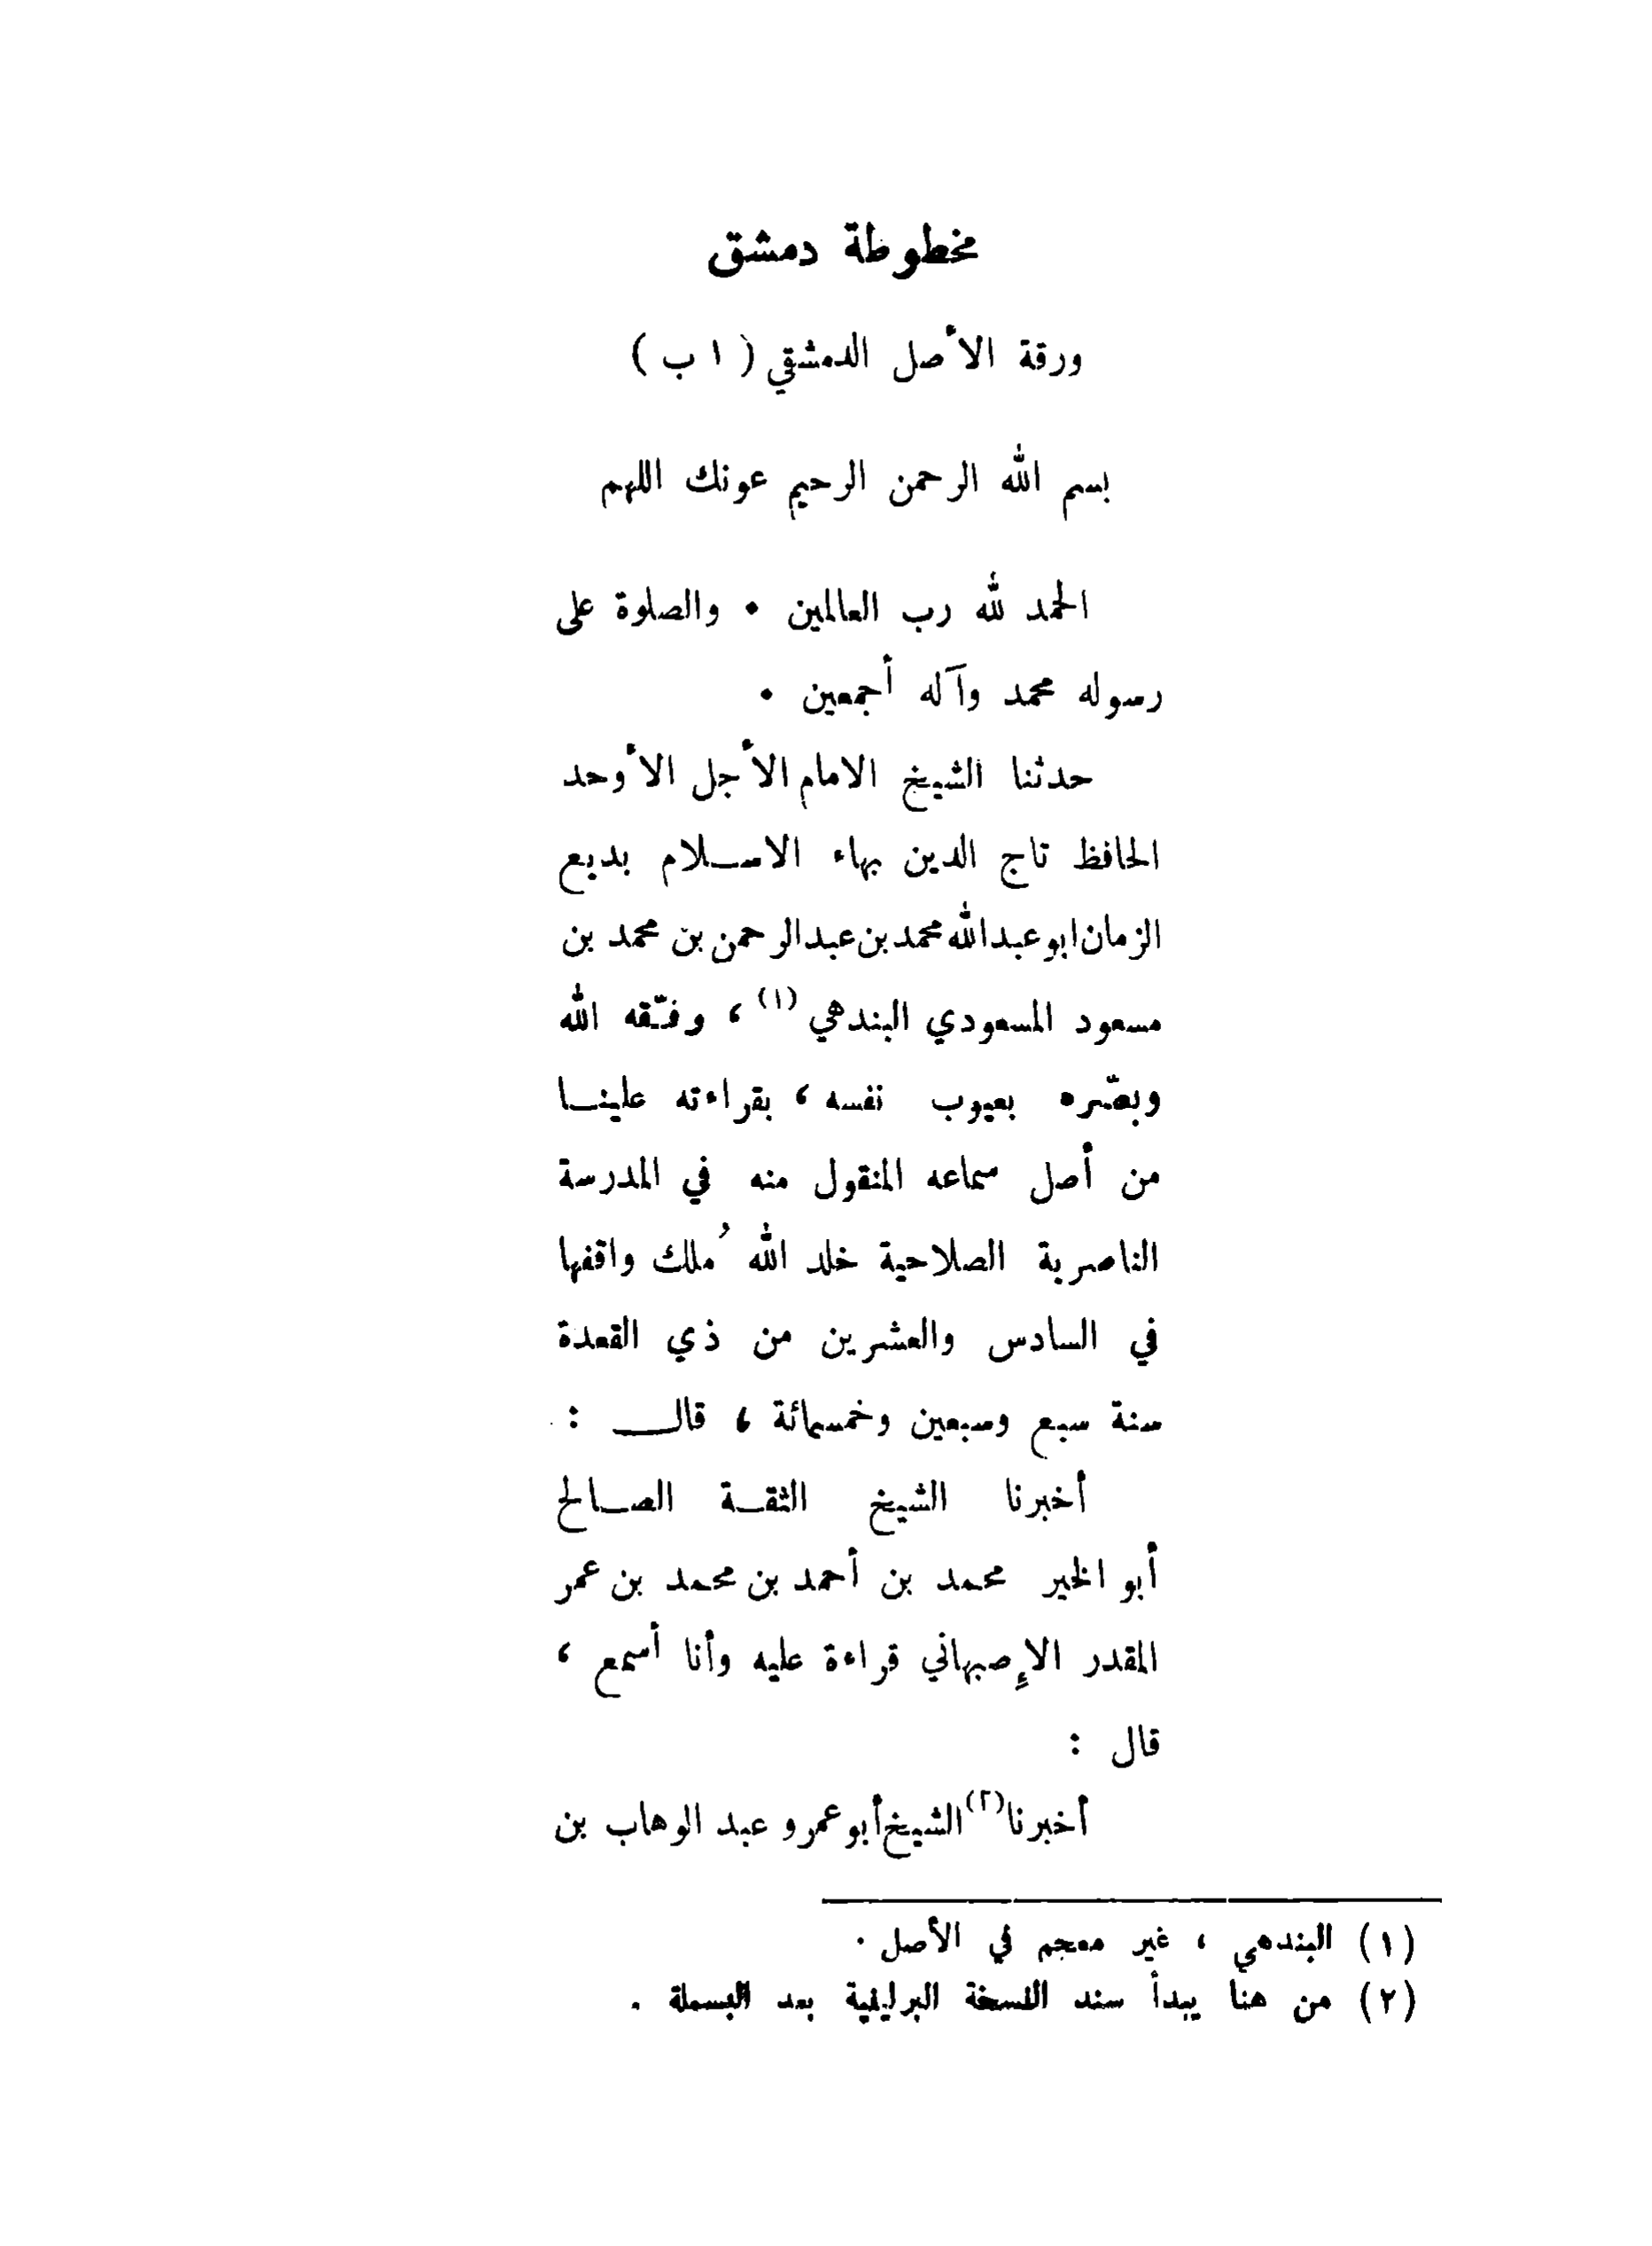 مخطوطة دمشق
ورقة الأصل الدمشقي ( ١ ب )
بسم الله الرحمن الرحيم عونك اللهم
الحمد لله رب العالمين • والصلوة على
رسوله محمد وآله أجمعين •
حدثنا الشيخ الامام الأجل الأوحد
الحافظ تاج الدين بهاء الاسـلام بديع
الزمان ابو عبد الله محمد بن عبد الرحمن بن محمد بن
مسعود المسعودي البندهي (١) ، وفّقه الله
وبصّره بعيوب نفسه ، بقراءته علينـا
من أصل سماعه المنقول منه في المدرسة
الناصرية الصلاحية خلد الله مُلك واقفها
في السادس والعشرين من ذي القعدة
سنة سبع وسبعين وخمسمائة ، قالـ :
أخبرنا الشيخ الثقـة الصـالح
أبو الخير محمد بن أحمد بن محمد بن عمر
المقدر الإصبهاني قراءة عليه وأنا أسمع ،
قال :
أخبرنا (٢) الشيخ أبو عمرو عبد الوهاب بن
(١) البندهي ، غير معجم في الأصل .
(٢) من هنا يبدأ سند النسخة البرلينية بعد البسملة .